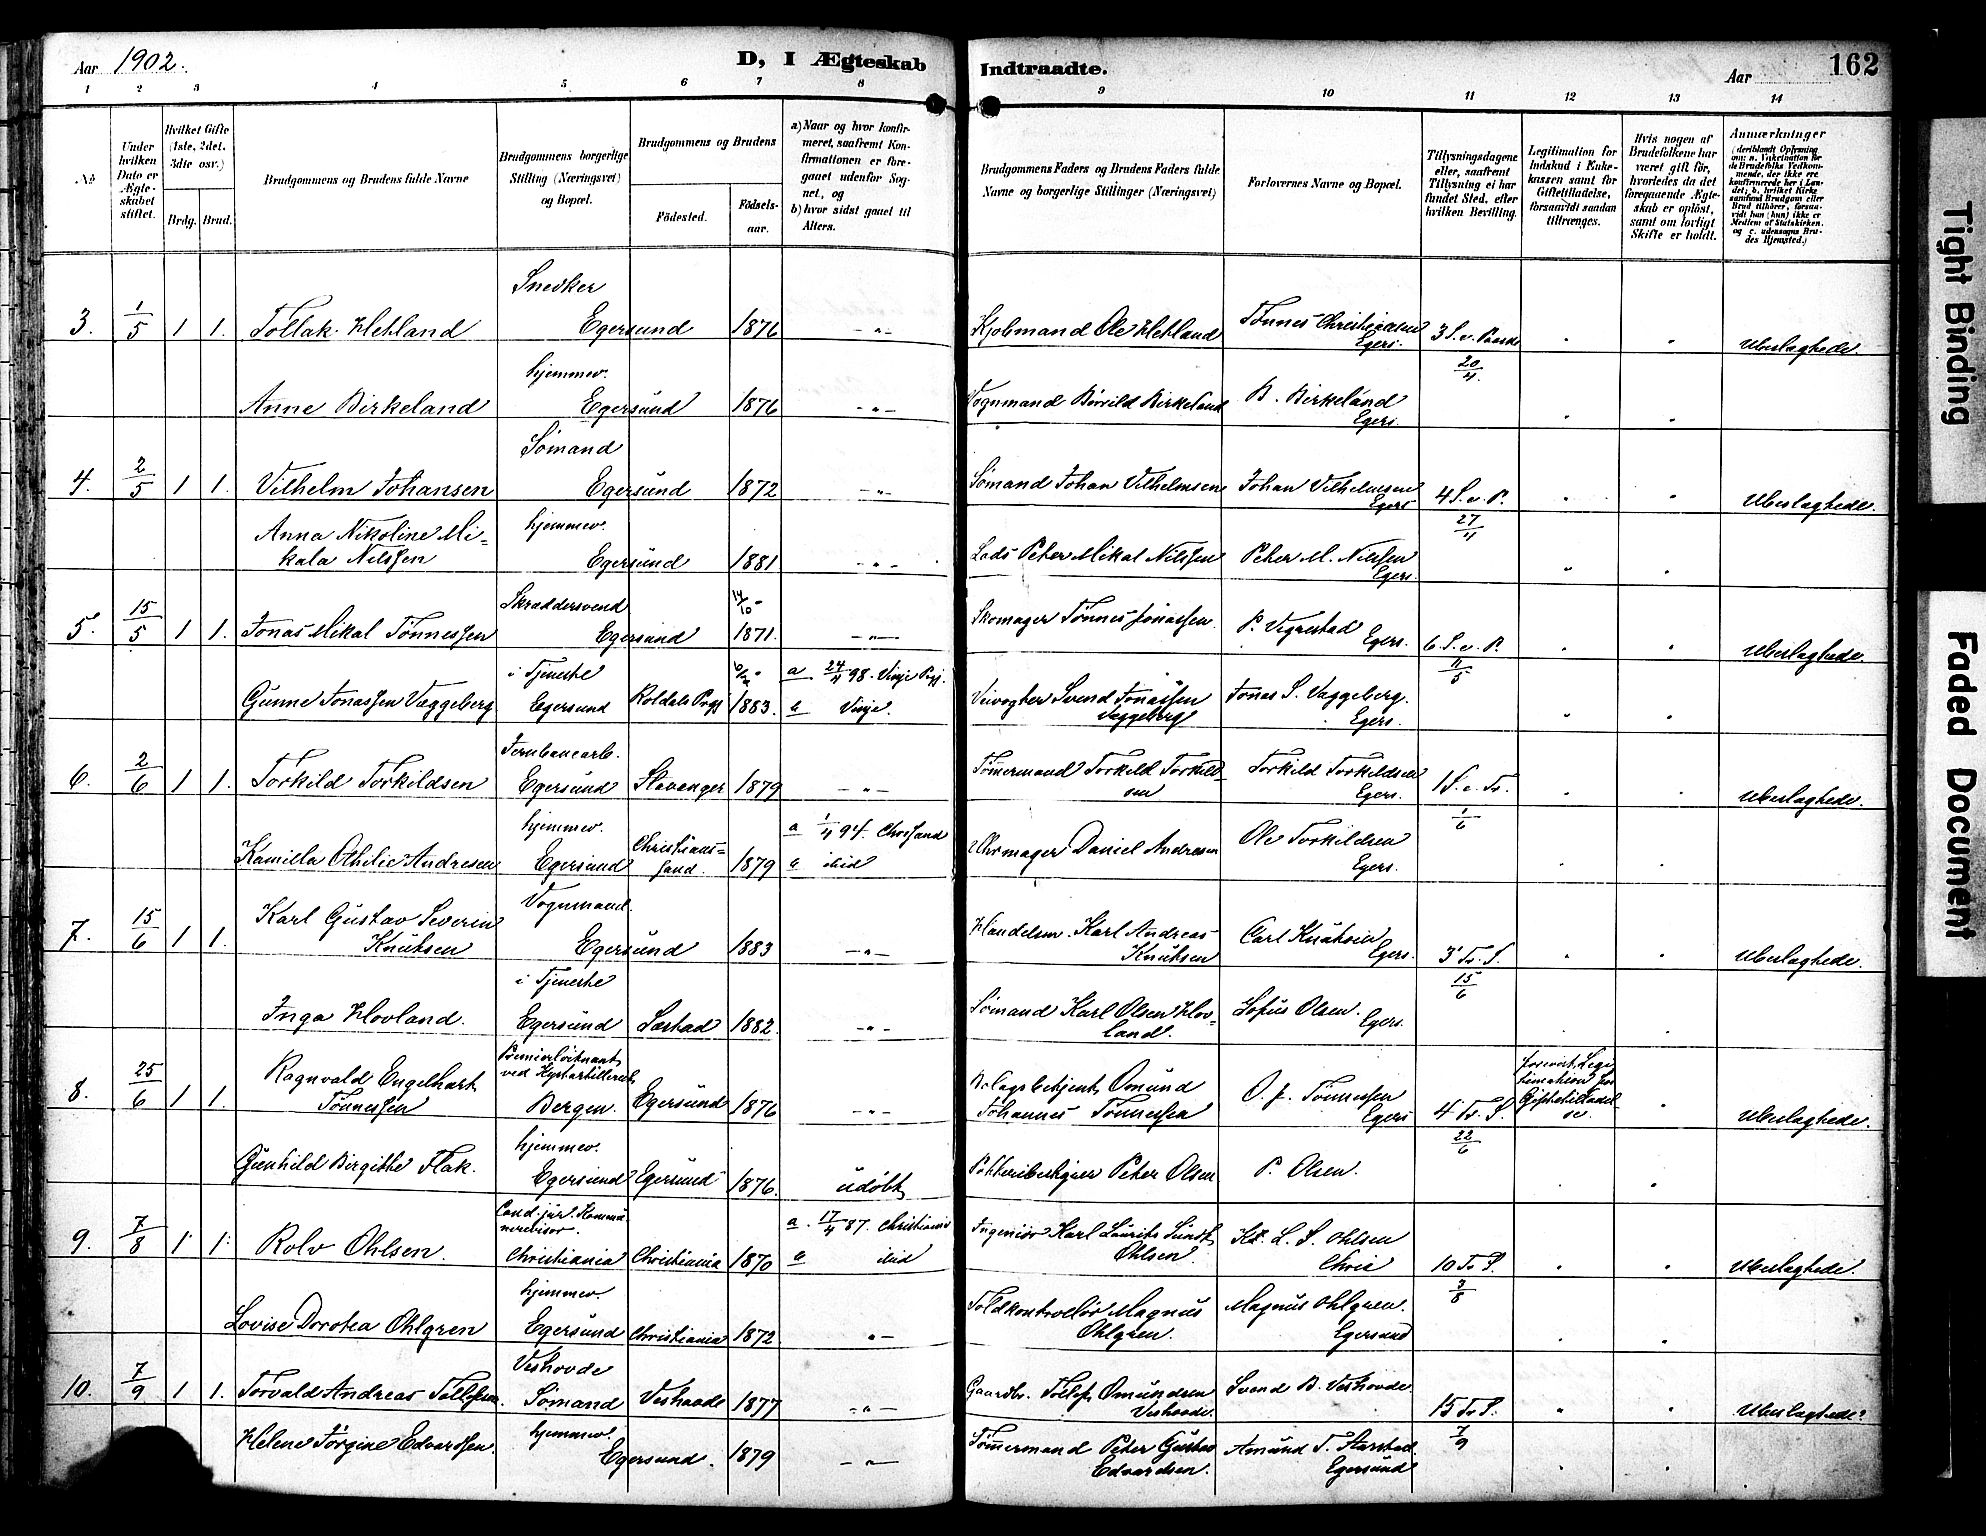 Aar 1902.
D, I Ægteskab Indtraadte.
Aar
162
1 2 3 4 5 6 7 8 9 10 11 12 13 14
No
Under hvilken Dato er Ægteskabet stiftet.
Hvilket Gifte (1ste, 2det, 3die osv.)
Brdg. Brud.
Brudgommens og Brudens fulde Navne
Brudgommens borgerlige Stilling (Næringsvei) og Bopæl.
Brudgommens og Brudens
Fødested.
Fødselsaar.
a) Naar og hvor konfirmeret, saafremt Konfirmationen er foregaaet udenfor Sognet, og
b) hvor sidst gaaet til Alters.
Brudgommens Faders og Brudens Faders fulde Navne og borgerlige Stillinger (Næringsvei)
Forlovernes Navne og Bopæl.
Tillysningsdagene eller, saafremt Tillysning ei har fundet Sted, efter hvilken Bevilling.
Legitimation for Indskud i Enkekassen samt for Giftetilladelse, forsaavidt saadan tiltrænges.
Hvis nogen af Brudefolkene har været gift før, hvorledes da det foregaaende Ægteskab er opløst, samt om lovligt Skifte er holdt.
Anmærkninger (deriblandt Oplysning om: a. Vakcination for de Brudefolks Vedkommende, der ikke ere konfirmerede her i Landet; b. hvilket Kirkesamfund Brudgom eller Brud tilhører, forsaavidt han (hun) ikke er Medlem af Statskirken, og c. udensogns Brudes Hjemsted.)
3. 1/5 1 1. Tollak Hetland Snedker Egersund 1876 -"- Kjøbmand Ole Hetland Tønnes Christiansen Egers. 3 S. e. Paaske 20/4 " " Ubeslægtede.
Anne Birkeland hjemmev. Egersund 1876 -"- Vognmand Børild Birkeland B. Birkeland Egers. " "
4. 2/5 1 1. Vilhelm Johansen Sømand Egersund 1872 -"- Sømand Johan Vilhelmsen Johan Vilhelmsen Egers 4 S. e. P. 27/4 " " Ubeslægtede.
Anna Nikoline Mikala Nilssen hjemmev. Egersund 1881 -"- Lods Peter Mikal Nilssen Peter M. Nilssen Egers. " "
5. 15/5 1 1. Jonas Mikal Tønnessen Skræddersvend Egersund 14/10 1871. -"- Skomager Tønnes Jonassen P. Vegrestad Egers. 6 S. e. P. 11/5 " " Ubeslægtede
Gunne Jonassen Vaggeberg i Tjeneste Egersund Roldals Prgj 1883. a 24/4 98. Vinje Prgj. b Vinje. Veivogter Svend Jonassen Vaggeberg Jonas S. Vaggeberg. Egers. " "
6. 2/6 1 1. Torkild Torkildsen Jernbanearb. Egersund Stavanger 1879 -"- Tømermand Torkild Torkildsen Torkild Torkildsen Egers. 1 S. e. Tr. 1/6 " " Ubeslægtede.
Kamilla Othilie Andresen hjemmev. Egersund Christianssand. 1879 a 1/4 94. Chrssand b ibid Uhrmager Daniel Andresen Ole Torkildsen Egers. " "
7. 15/6 1 1. Karl Gustav Severin Knutsen Vognmand. Egersund 1883 -"- Handelsm. Karl Andreas Knutsen Carl Knutsen Egers. 3 Tr. S. 15/6 " " Ubeslægtede.
Inga Hovland. i Tjeneste Egersund Sæstad 1882. -"- Sømand Karl Olsen Hovland. Sofus Olsen. Egers. "
8. 25/6 1 1. Ragnvald Engelhart Tønnessen Premierløitnant ved Kystartilleriet Bergen. Egersund 1876 -"- Bolagsbetjent Omund Johannes Tønnessen O. J. Tønnessen Egers 4 Tr. S. 22/6 forevist Legitimation for Giftetilladelse. " Ubeslægtede.
Gunhild Birgithe Flak. hjemmev. Egersund Egersund 1876. udøbt Potteribestyrer Peter Olsen P. Olsen. " "
9. 7/8 1 1. Rolv Ohlsen. Cand. jur. Kommunerevisor. Christiania Christiania 1870 a. 17/4 87. Christiania b ibid Ingeniør Karl Laurits Sundt Ohlsen. K. L. S. Ohlsen Chria 10 Tr S. 3/8 " " Ubeslægtede.
Lovise Dorotea Ohlgren hjemmev. Egersund Christiania 1872 -"- Toldkontrolør Magnus Ohlgren. Magnus Ohlgren. Egersund " "
10. 7/9 1 1. Torvald Andreas Tollefsen. Veshovde Sømand Veshovde 1877 -"- Gaardbr. Tollef Omundsen Veshovde. Svend B. Veshovde 15 Tr S. 7/9 " " Ubeslægtede.
Helene Jørgine Edvardsen. hjemmev. Egersund. 1879 -"- Tømermand Peter Gustav Edvardsen. Amund T. Aarstad. Egersund " "
Tight Binding
Faded Document